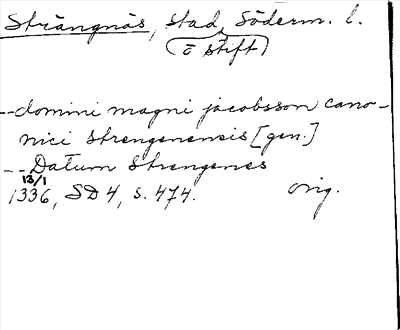 Strängnäs, stad, Söderm. l.
(o stift)
--domini magni jacobsson cano-
nici Strengenensis [gen.]
--Datum Strengenes
13/1
1336, SD 4, s. 474. orig.